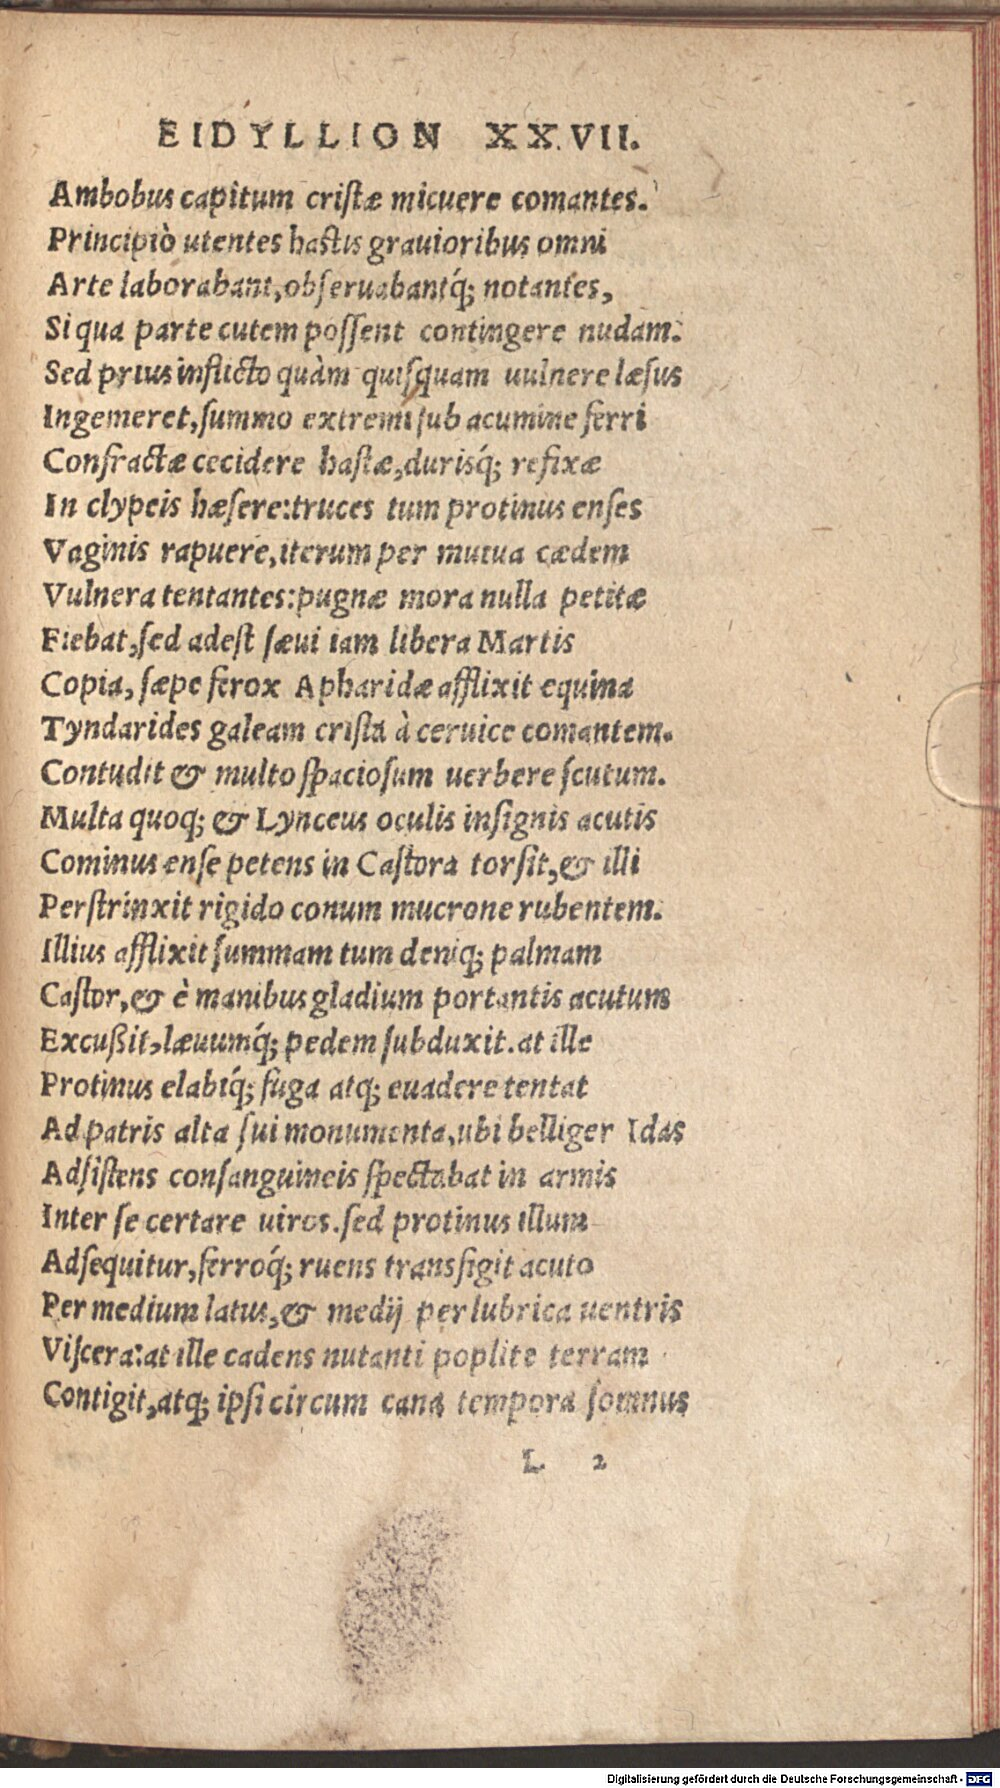 EIDYLLION XXVII.
Ambobus capitum cristæ micuere comantes.
Principiò utentes hastis grauioribus omni
Arte laborabant, obseruabantq́; notantes,
Si qua parte cutem possent contingere nudam.
Sed prius inflicto quàm quisquam uulnere læsus
Ingemeret, summo extremi sub acumine ferri
Confractæ cecidere hastæ, durisq́; refixæ
In clypeis hæsere: truces tum protinus enses
Vaginis rapuere, iterum per mutua cædem
Vulnera tentantes: pugnæ mora nulla petitæ
Fiebat, sed adest sæui iam libera Martis
Copia, sæpe ferox Apharidæ afflixit equina
Tyndarides galeam crista à ceruice comantem.
Contudit & multo spaciosum uerbere scutum.
Multa quoq; & Lynceus oculis insignis acutis
Cominus ense petens in Castora torsit, & illi
Perstrinxit rigido conum mucrone rubentem.
Illius afflixit summam tum deniq; palmam
Castor, & è manibus gladium portantis acutum
Excußit, læuumq́; pedem subduxit. at ille
Protinus elabiq́; fuga atq; euadere tentat
Ad patris alta sui monumenta, ubi belliger Idas
Adsistens consanguineis spectabat in armis
Inter se certare uiros. sed protinus illum
Adsequitur, ferroq́; ruens transfigit acuto
Per medium latus, & medij per lubrica uentris
Viscera: at ille cadens nutanti poplite terram
Contigit, atq; ipsi circum cana tempora somnus
L 2
Digitalisierung gefördert durch die Deutsche Forschungsgemeinschaft - DFG